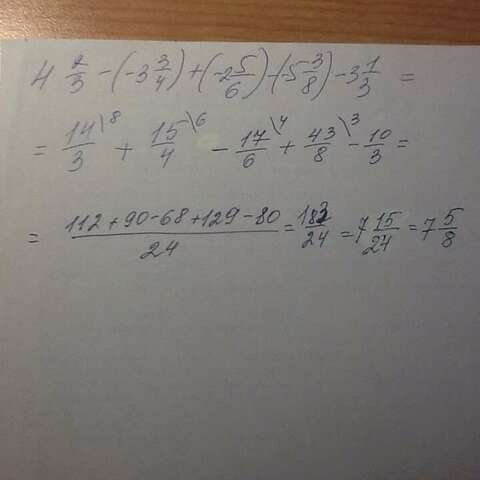 4 2/3 - (-3 3/4) + (-2 5/6) - (-5 3/8) - 3 1/3 =
= 14/3 \8 + 15/4 \6 - 17/6 \4 + 43/8 \3 - 10/3 =
= 112+90-68+129-80/24 = 183/24 = 7 15/24 = 7 5/8